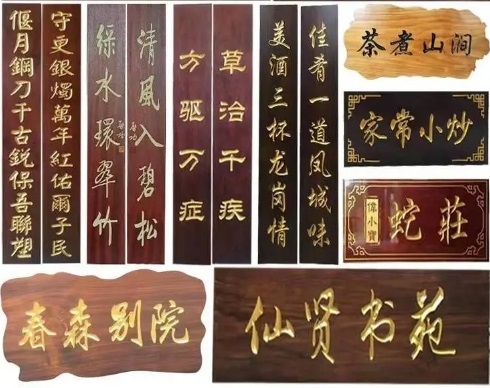 守更銀燭萬年紅佑爾子民
偃月鋼刀千古銳保吾聯塑
清風入碧松
綠水環翠竹
草治千疾
方驱万症
佳肴一道凤城味
美酒三杯龙岗情
茶煮山涧
家常小炒
偉小寶
蛇莊
春森别院
仙贤书苑